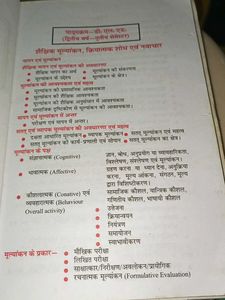 पाठ्यक्रम—डी. एल. एड.
(द्वितीय वर्ष—तृतीय सेमेस्टर)
शैक्षिक मूल्यांकन, क्रियात्मक शोध एवं नवाचार
मापन एवं मूल्यांकन
शैक्षिक मापन एवं मूल्यांकन की अवधारणा
• शैक्षिक मापन का अर्थ • मूल्यांकन की संकल्पना
• मूल्यांकन के उद्देश्य • मूल्यांकन का क्षेत्र।
मूल्यांकन की आवश्यकता एवं महत्व
• मूल्यांकन की प्रशासनिक आवश्यकता
• मूल्यांकन की शैक्षिक आवश्यकता
• मूल्यांकन की शोध की आवश्यकता
• सामाजिक दृष्टिकोण में मूल्यांकन की आवश्यकता।
मापन एवं मूल्यांकन में अन्तर
• परीक्षण एवं मापन में अन्तर।
सतत् एवं व्यापक मूल्यांकन की अवधारणा एवं महत्व
• दक्षता आधारित मूल्यांकन • व्यापक मूल्यांकन • सतत् मूल्यांकन
• सतत् मूल्यांकन की कार्य-प्रणाली एवं सोपान • सतत् एवं व्यापक मूल्यांकन का महत्व एवं क्षेत्र।
मूल्यांकन के पक्ष
• संज्ञानात्मक (Cognitive) ज्ञान, बोध, अनुप्रयोग या व्यावहारिकता, विश्लेषण, संश्लेषण एवं मूल्यांकन।
• भावात्मक (Affective) ग्रहण करना या ध्यान देना, अनुक्रिया करना, मूल्य आंकना, संगठन, मूल्य द्वारा विशिष्टीकरण।
• कौशलात्मक (Conative) एवं सामाजिक कौशल, यांत्रिक कौशल,
व्यवहारात्मक (Behaviour गणितीय कौशल, भाषायी कौशल
Overall activity) उत्तेजना
• क्रियान्वयन
• नियंत्रण
• समायोजन
• स्वाभावीकरण
मूल्यांकन के प्रकार— • मौखिक परीक्षा
• लिखित परीक्षा
• साक्षात्कार/निरीक्षण/अवलोकन/प्रायोगिक
• रचनात्मक मूल्यांकन (Formulative Evaluation)